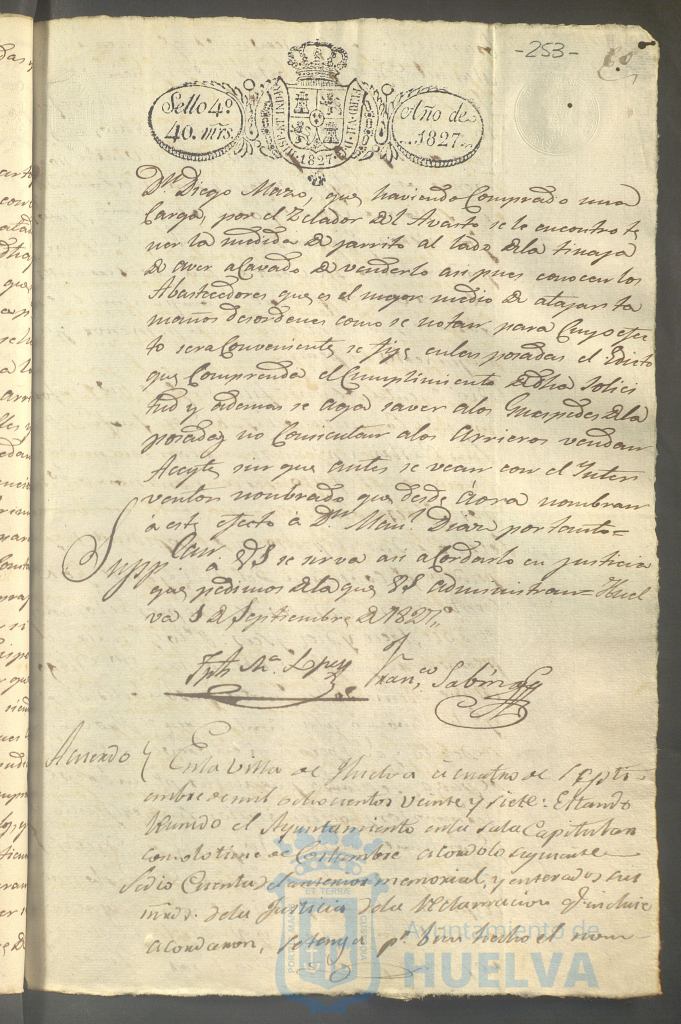 -253-
Sello 4º
40. mrs
HISP. ET IND. R.
1827
Año de
1827
Dn. Diego Mazo, que haviendo Comprado una
Carga, por el Zelador del Avasto se le encontro te
ner la medida de jarrito al lado dela tinaja
de aver acavado de venderlo asi pues conocen los
Abastecedores que es el mejor medio de atajar ta
maños desordenes como se notan para Cuyo efec
to sera Conveniente se fije en las posadas el Edicto
que Comprenda el Cumplimiento de dha Solici
tud y ademas se aga saver alos Guespedes dela
posadas no Consientan alos Arrieros vendan
Aceyte sin que antes se vean con el Inter
ventor nombrado que desde áora nombran
á este efecto á Dn. Manl. Diaz por tanto=
Suppcan. a VS se sirva asi acordarlo en justicia
que pedimos dela que VS administran= Huel
va 3 de Septiembre de 1827,,
Jph Ma. Lopez
Franco. Sabino
Acuerdo
En la Villa de Huelva á cuatro de Septi-
embre de mil ochocientos veinte y siete: Estando
reunido el Ayuntamiento en la sala Capitular
como lo tiene de Costumbre acordo lo siguiente
Se dio Cuenta del anterior memorial, y enterados sus
mrds. dela Justicia dela reclamacion qe. incluie
acordaron, se tenga pr. bien hecho el nom-
PORTUS MARIS
ET TERRAE CUSTODIA
Ayuntamiento de
HUELVA